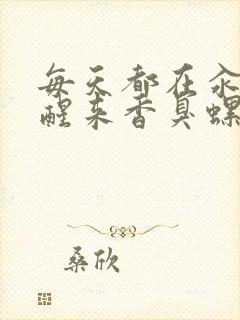 每天都在汆
醒来香臭螺
桑欣